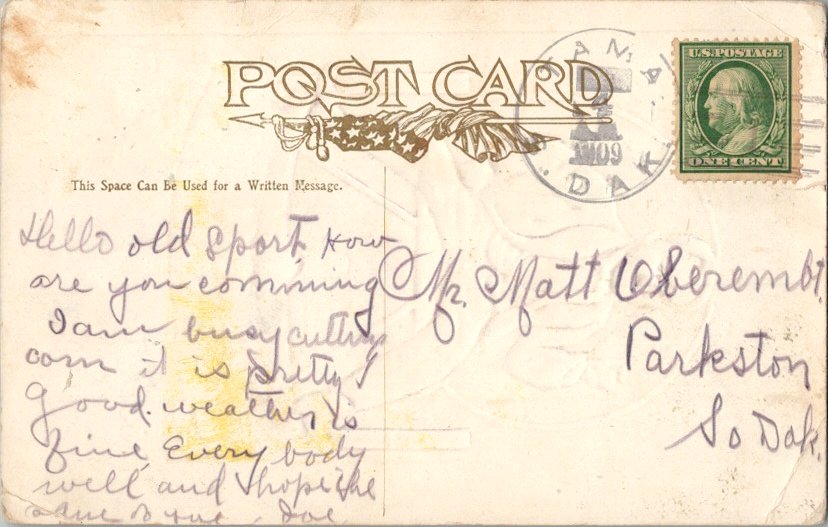 POST CARD
ANA
AM 09
DAK.
U.S. POSTAGE
ONE CENT
This Space Can Be Used for a Written Message.
Hello old sport How
are you comming
I am busy cutting
corn it is pretty
good. weather is
fine Every body
well and I hope the
same to you. Joe
Mr. Matt Oberembt.
Parkston
So Dak.